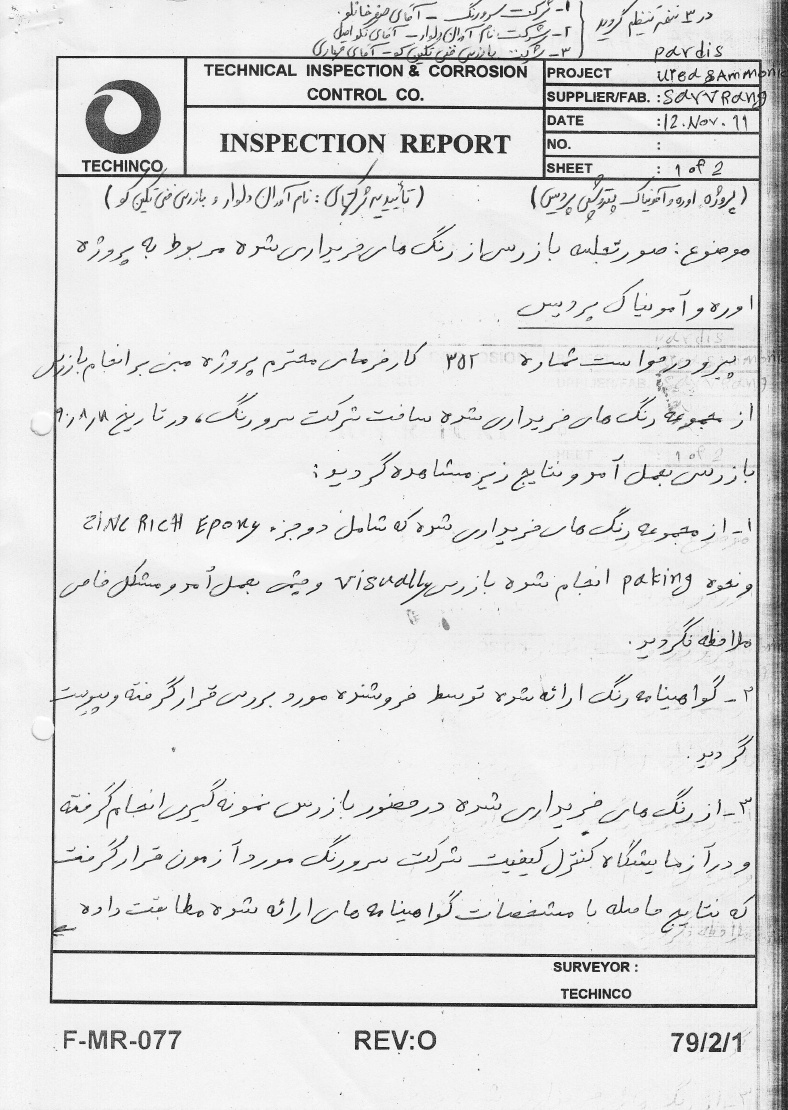 در ۳ نسخه تنظیم گردید
۱- شرکت سرورنگ - آقای صفرخانلو
۲- شرکت نام آوران دلوار - آقای نکواصل
۳- شرکت بازرسی فنی تکین کو - آقای
TECHINCO
TECHNICAL INSPECTION & CORROSION
CONTROL CO.
INSPECTION REPORT
pardis
PROJECT Urea & Ammonia
SUPPLIER/FAB. : Sarv Rang
DATE :12.Nov.11
NO. :
SHEET : 1 of 2
(پروژه اوره و آمونیاک پتروشیمی پردیس) (تأییدیه شرکتهای: نام آوران دلوار و بازرسی فنی تکین کو)
موضوع: صورتجلسه بازرسی از رنگ های خریداری شده مربوط به پروژه
اوره و آمونیاک پردیس
پیرو درخواست شماره ۳۵۲ کارفرمای محترم پروژه مبنی بر انجام بازرسی
از مجموعه رنگ های خریداری شده ساخت شرکت سرورنگ، در تاریخ
بازرسی بعمل آمد و نتایج زیر مشاهده گردید:
۱- از مجموعه رنگ های خریداری شده که شامل دو جزء ZINC RICH EPOXY
و نحوه paking انجام شده بازرسی visually و چشمی بعمل آمد و مشکل خاصی
ملاحظه نگردید.
۲- گواهینامه رنگ ارائه شده توسط فروشنده مورد بررسی قرار گرفته و پیوست
گردید.
۳- از رنگ های خریداری شده در حضور بازرس نمونه گیری انجام گرفته
و در آزمایشگاه کنترل کیفیت شرکت سرورنگ مورد آزمون قرار گرفت
که نتایج حاصله با مشخصات گواهینامه های ارائه شده مطابقت داده
SURVEYOR :
TECHINCO
F-MR-077 REV:O 79/2/1